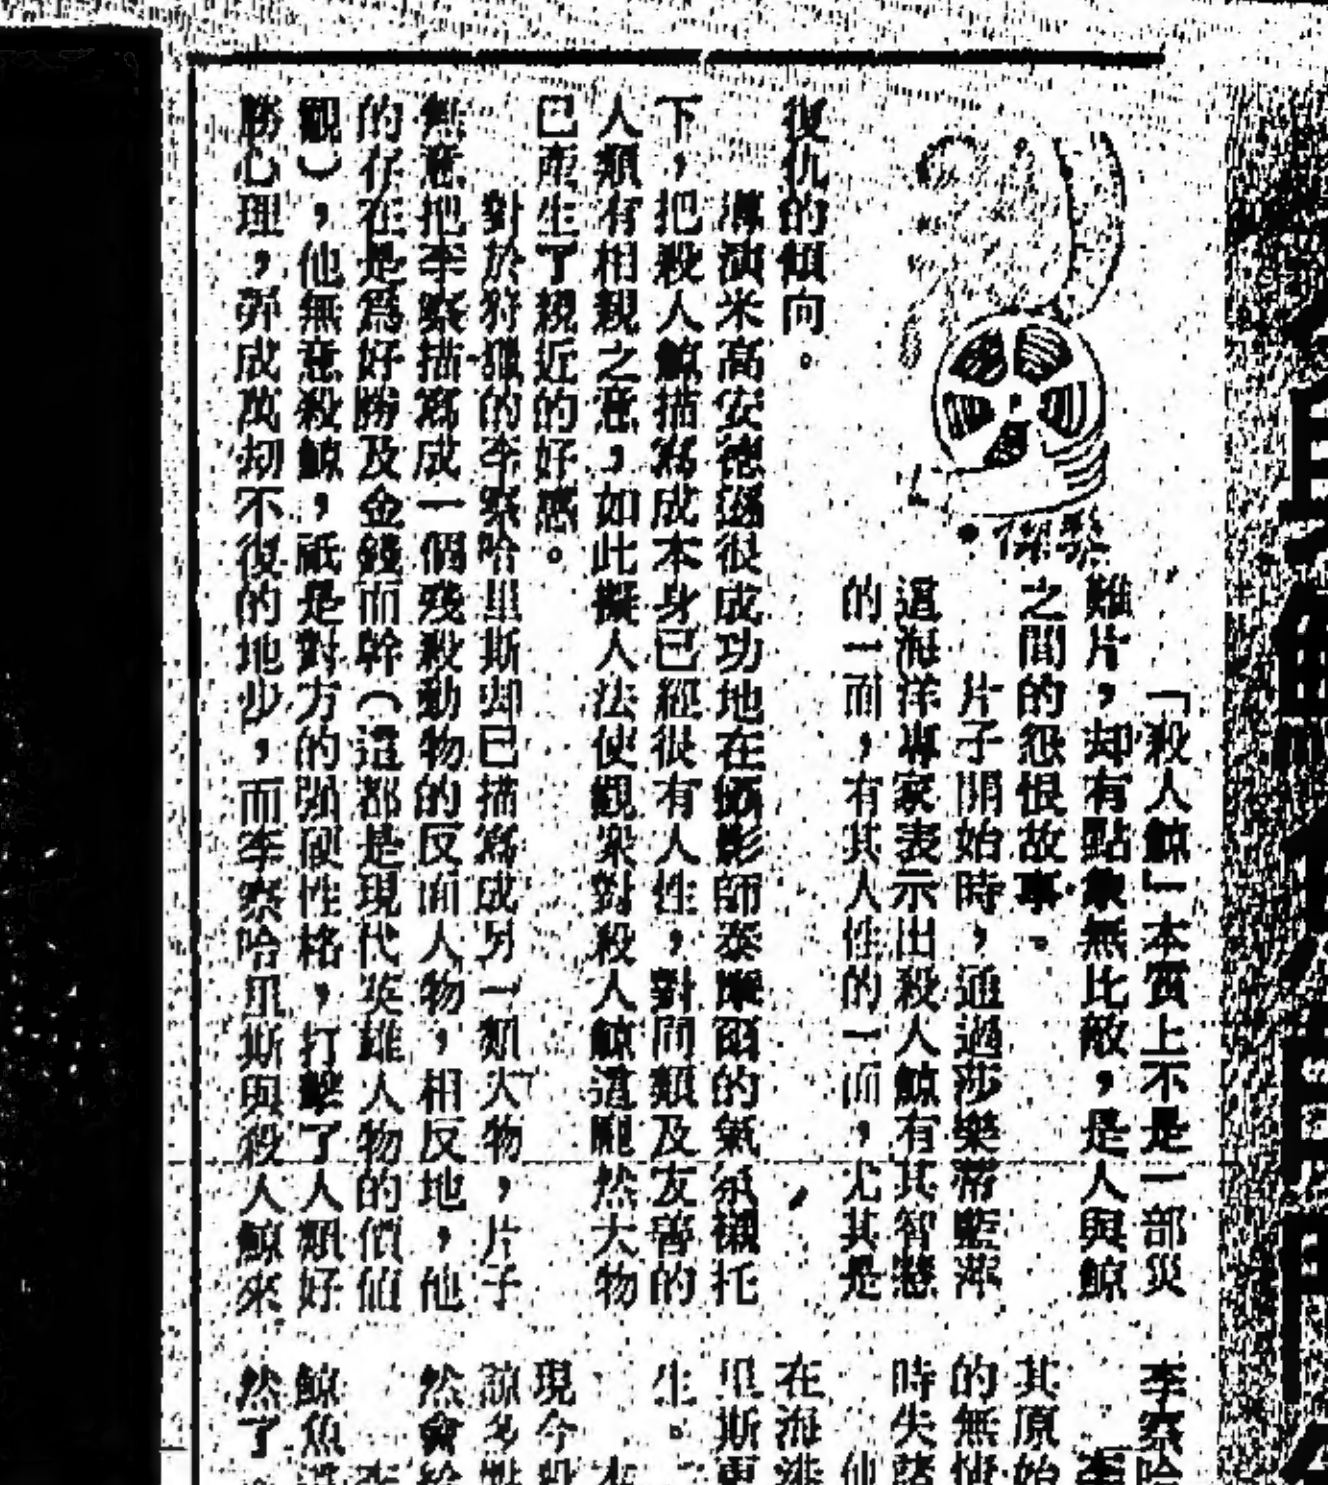 •傑黎
「殺人鯨」本質上不是一部災
難片，却有點象無比敵，是人與鯨
之間的怨恨故事。
片子開始時，通過莎樂蒂藍萍
這海洋專家表示出殺人鯨有其智慧
的一面，有其人性的一面，尤其是
復仇的傾向。
導演米高安德遜很成功地在攝影師泰摩爾的氣氛襯托
下，把殺人鯨描寫成本身已經很有人性，對同類及友善的
人類有相親之意，如此擬人法使觀衆對殺人鯨這龐然大物
已產生了親近的好感。
對於狩獵的李察哈里斯却已描寫成另一類人物，片子
無意把李察描寫成一個殘殺動物的反面人物，相反地，他
的存在是爲好勝及金錢而幹（這都是現代英雄人物的價值
觀），他無意殺鯨，祇是對方的強硬性格，打擊了人類好
勝心理，弄成萬劫不復的地步，而李察哈里斯與殺人鯨來
李察哈
其原始
的無
時失諸
在海港
里斯更
生。
現今殺
然會給
鯨魚
然了